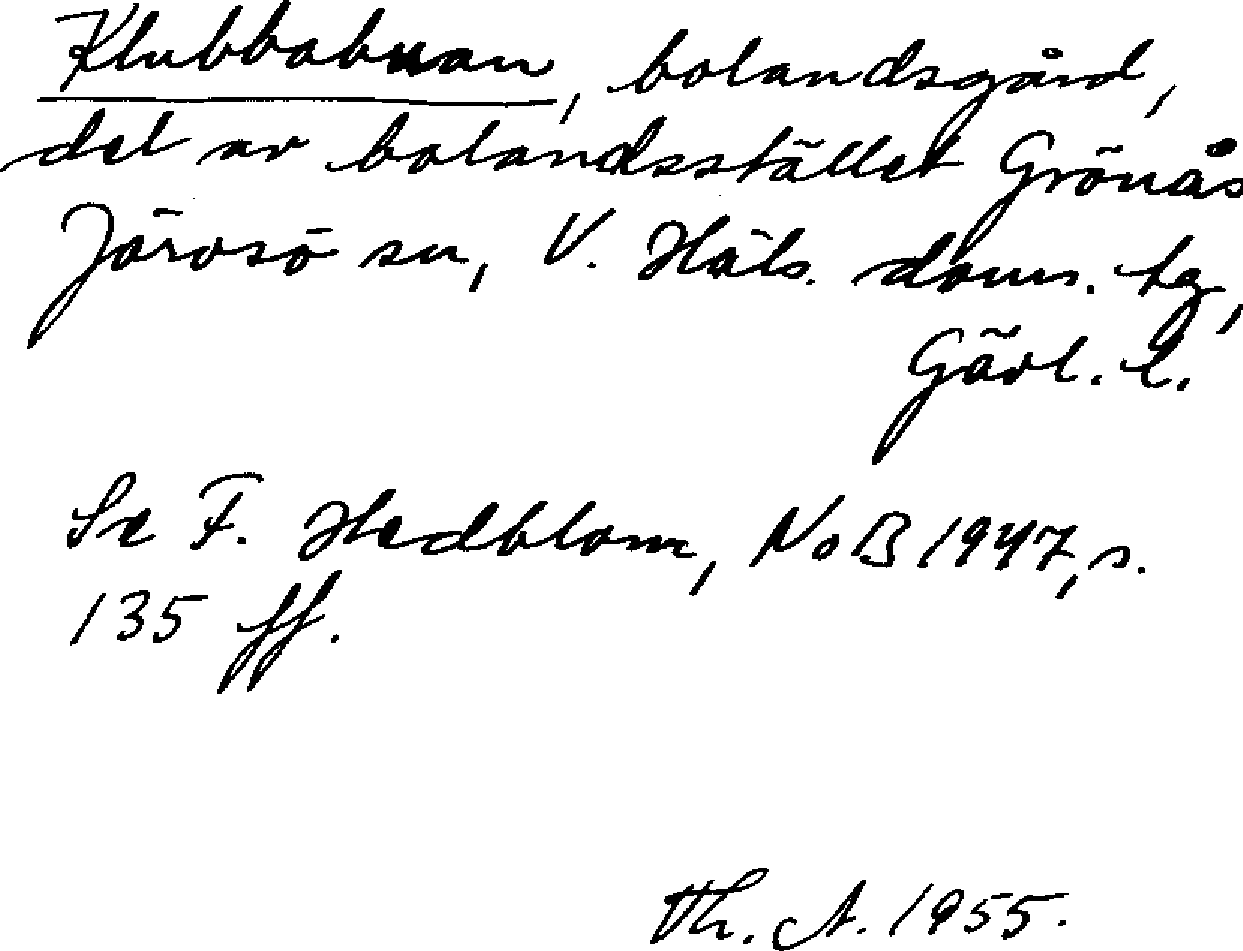 Klubbabuan, bolandsgård,
del av bolandsstället Grönås
Järvsö sn, V. Häls. doms. tg,
Gävl. l.
Se F. Hedblom, NoB 1947, s.
135 ff.
Th. A. 1955.